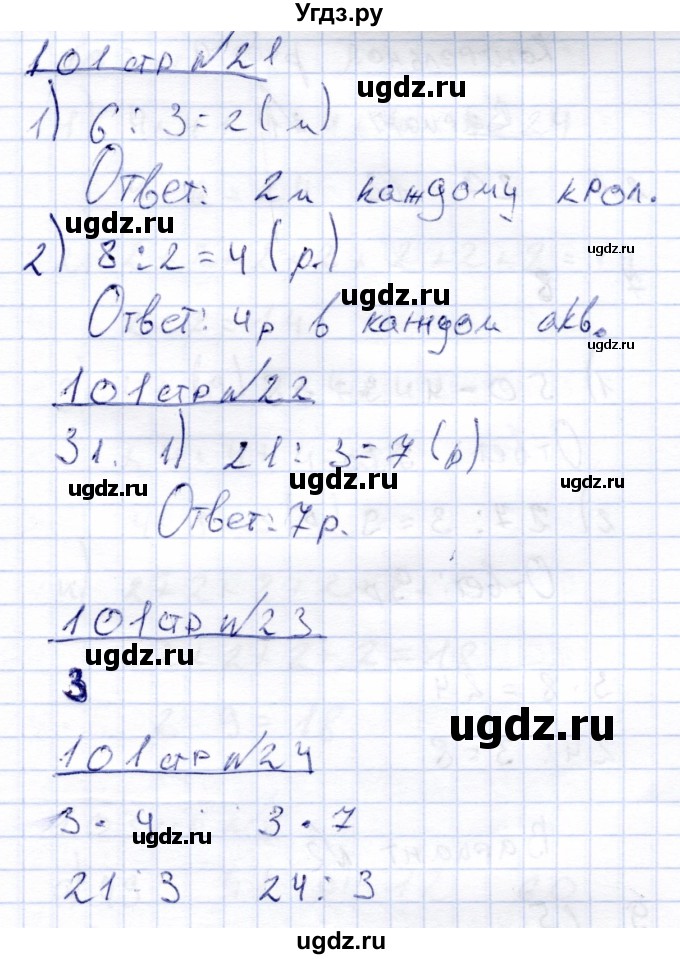 Угдз.ру
101 стр №21
ugdz.ru
1) 6 : 3 = 2 (м)
Ответ: 2м каждому крол.
ugdz.ru
2) 8 : 2 = 4 (р.)
ugdz.ru
ugdz.ru
Ответ: 4р в каждом акв.
ugdz.ru
101 стр №22
31. 1) 21 : 3 = 7 (р)
ugdz.ru
ugdz.ru
Ответ: 7р.
101 стр №23
ugdz.ru
3
ugdz.ru
101 стр №24
3 · 4 3 · 7
ugdz.ru
21 : 3 24 : 3
ugdz.ru